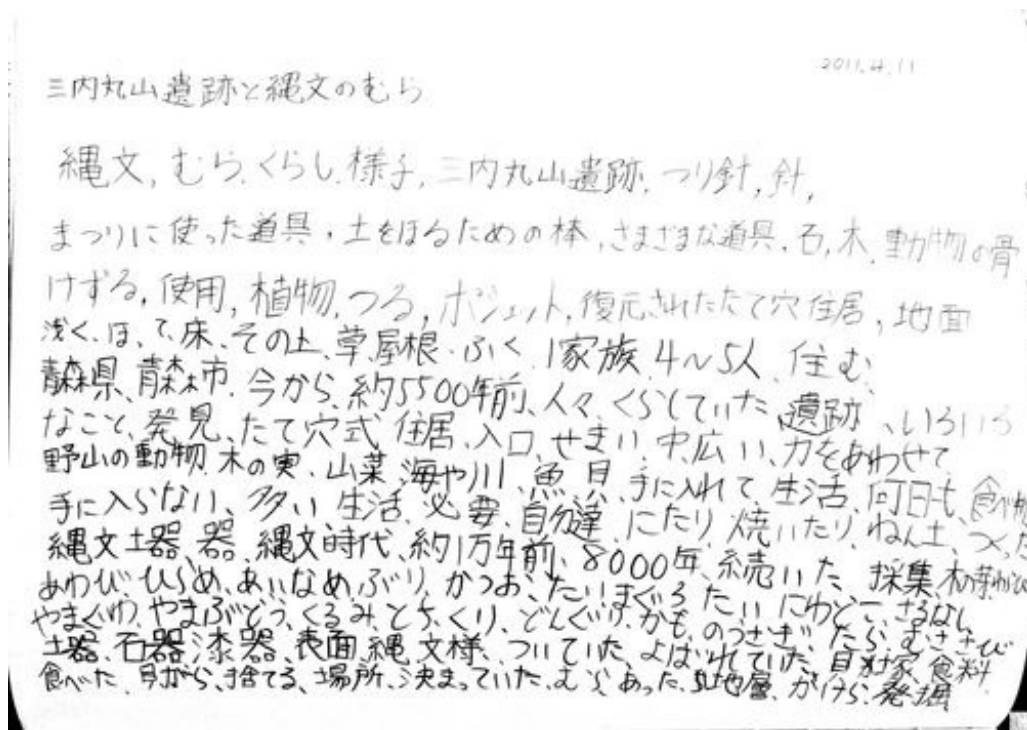 2011.4.11
三内丸山遺跡と縄文のむら
縄文, むら, くらし, 様子, 三内丸山遺跡, つり針, 針,
まつりに使った道具, 土をほるための棒, さまざまな道具, 石, 木, 動物の骨
けずる, 使用, 植物, つる, ポシェット, 復元されたたて穴住居, 地面
浅く、ほって、床、その上、草、屋根、ふく、1家族、4〜5人、住む、
青森県、青森市、今から、約5500年前、人々、くらしていた、遺跡、いろいろ
なこと、発見、たて穴式住居、入口、せまい、中、広い、力をあわせて
野山の動物、木の実、山菜、海や川、魚、貝、手に入れて、生活、何日も、食べ物
手に入らない、多い、生活、必要、自分達、にたり、焼いたり、ねん土、つった
縄文土器、器、縄文時代、約1万年前、8000年、続いた、採集、木の芽
あわび、ひらめ、あいなめ、ぶり、かつお、たい、まぐろ、たい、にわとこ、さるなし、
やまぐわ、やまぶどう、くるみ、とち、くり、どんぐり、かも、のうさぎ、たら、むささび
土器、石器、漆器、表面、縄、文様、ついていた、よばれていた、食料
食べた、貝がら、捨てる、場所、決まっていた、むら、あった、地層、かけら、発掘